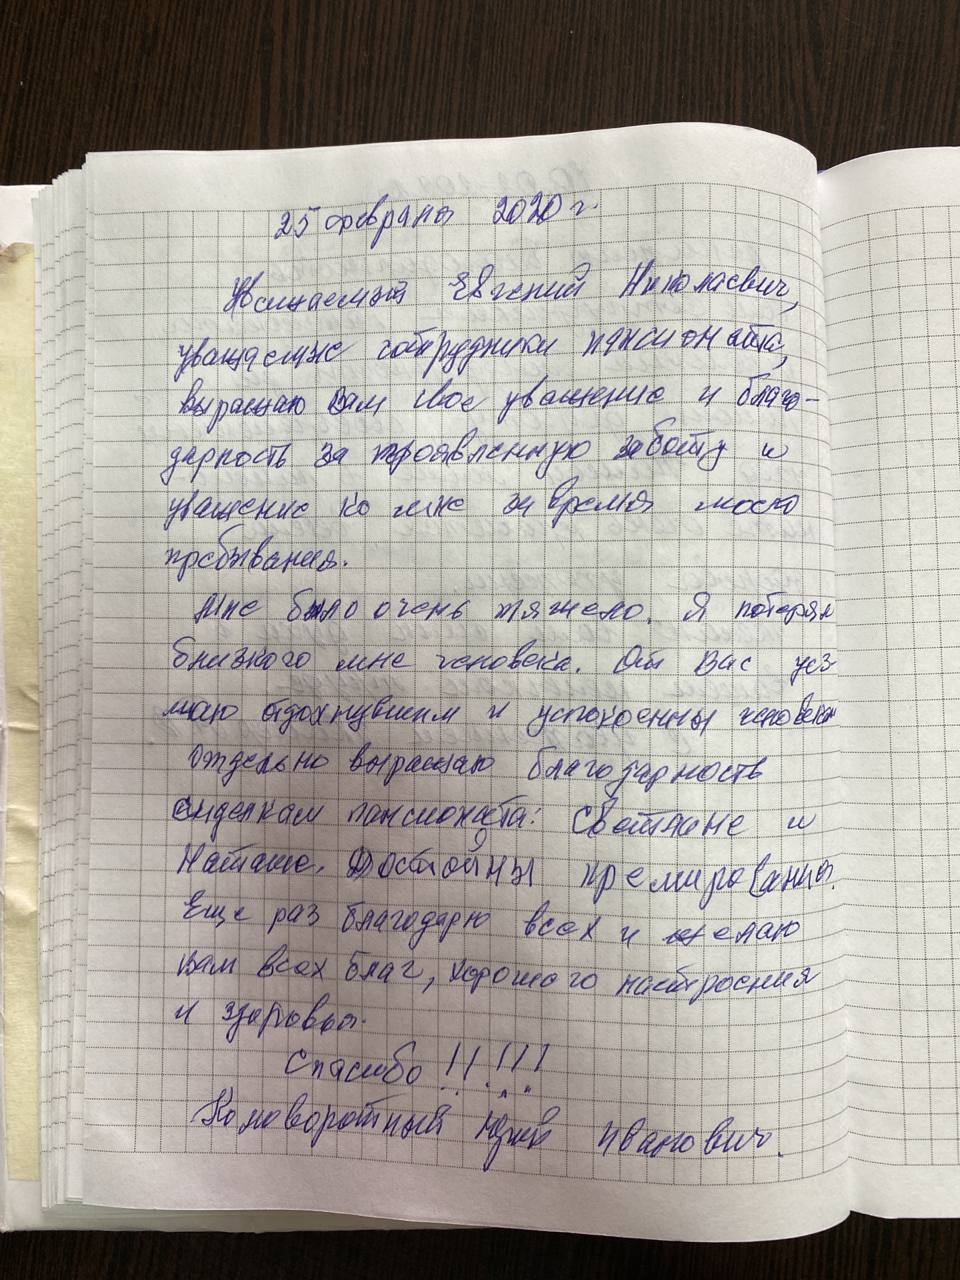 25 февраля 2020 г.
Уважаемый Евгений Николаевич,
уважаемые сотрудники пансионата,
выражаю Вам свое уважение и благо-
дарность за проявленную заботу и
уважение ко мне за время моего
пребывания.
Мне было очень тяжело. Я потерял
близкого мне человека. От Вас уез-
жаю отдохнувшим и успокоенны человеком
Отдельно выражаю благодарность
сиделкам пансионата: Светлане и
Наташе. Достойны премирования.
Еще раз благодарю всех и желаю
Вам всех благ, хорошего настроения
и здоровья.
Спасибо !!!!!
Коловоротный Юрий Иванович.